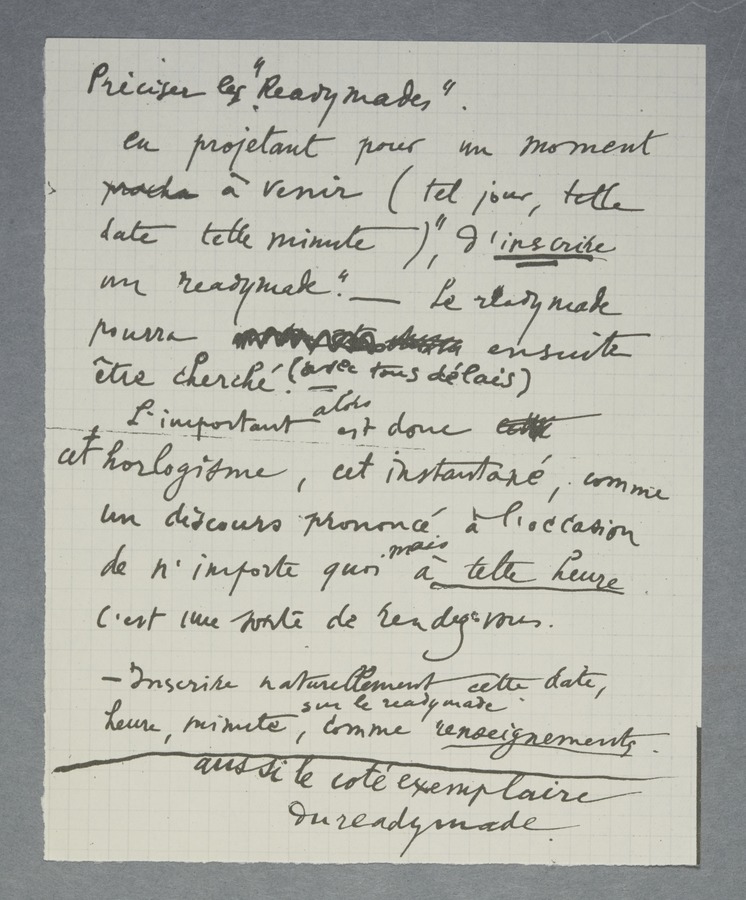 Préciser les "Readymades".
en projetant pour un moment
procha à venir (tel jour, telle
date telle minute)", d'inscrire
un readymade". — Le readymade
pourra ensuite
être cherché. (avec tous délais)
L'important alors est donc
cet horlogisme, cet instantané, comme
un discours prononcé à l'occasion
de n'importe quoi mais à telle heure
C'est une sorte de rendez vous.
— Inscrire naturellement cette date,
heure, minute, sur le readymade comme renseignements.
aussi le coté exemplaire
du readymade.